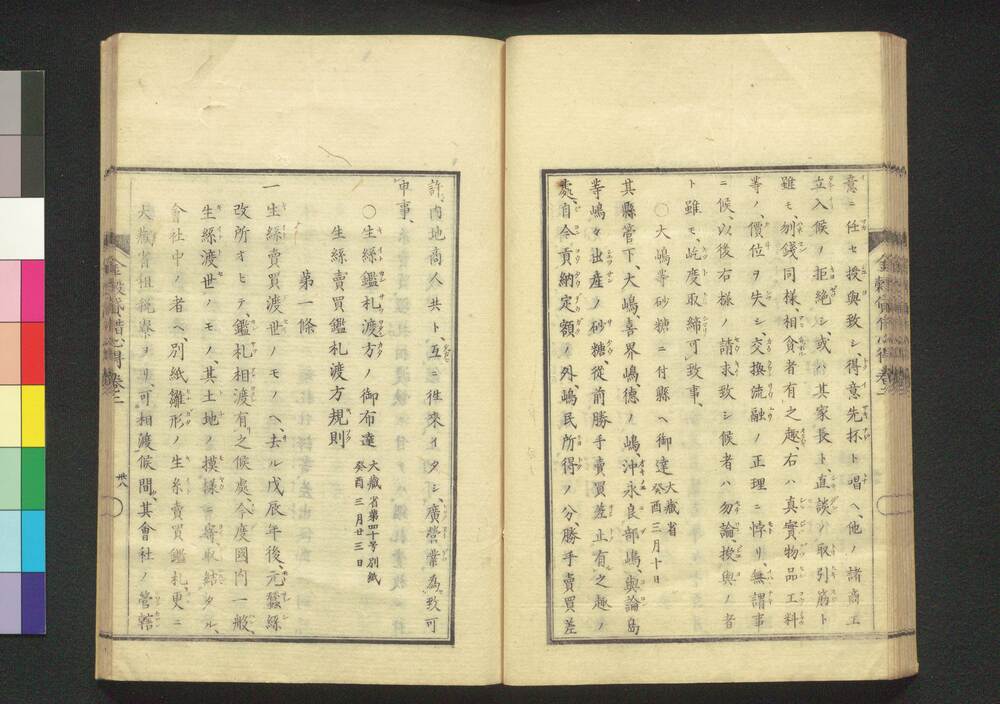 意ニ任セ授與致シ、得意先抔ト唱ヘ、他ノ諸商工
立入候ノ拒絶シ、或ハ其家長ト直談ノ取引爲ト
雖モ、刎錢同樣相貪者有之趣、右ハ眞實物品工料
等ノ、價位ヲ失シ、交換流融ノ正理ニ悖リ、無謂事
ニ候、以後右樣ノ請求致シ候者ハ勿論授與ノ者
ト雖モ、屹度取締可致事、
○大嶋等砂糖ニ付縣ヘ御達 大藏省 癸酉三月十日
其縣管下、大嶋、喜界嶋、德ノ嶋、沖永良部嶋、與論島
等嶋々出産ノ砂糖、從前勝手賣買差止有之趣ノ
處、自今貢納定額ノ外、嶋民所得ノ分、勝手賣買差
許、內地商人共ト、互ニ往來イタシ、廣營業爲致可
申事、
○生絲鑑札渡方ノ御布達 大藏省第四十号別紙 癸酉三月廿三日
生絲賣買鑑札渡方規則
第一條
一生絲賣買渡世ノモノヘ、去ル戊辰年後、元蠶絲
改所オヒテ、鑑札相渡有之候處、今度國內一般、
生絲渡世ノモノ、其土地ノ摸樣ニ寄取結タル、
會社中ノ者ヘ、別紙雛形ノ生糸賣買鑑札、更ニ
大藏省租稅寮ヨリ、可相渡候間、其會社ノ管轄
卅八